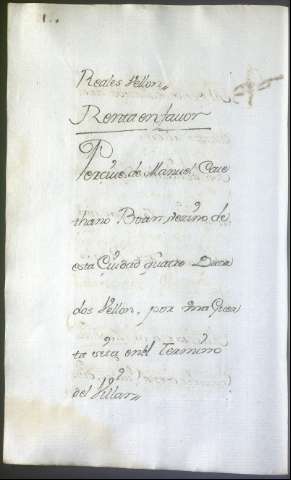 Reales Vellon
Renta en favor
Percive de Manuel Caie
thano Boran vezino de
esta Ciudad quatro Duca
dos Vellon, por una Guer
ta sita en el Termino
del Villar